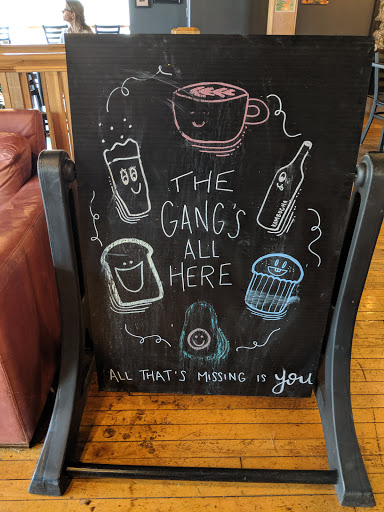 THE
GANG'S
ALL
HERE
KOMBUCHA
ALL THAT'S MISSING IS you